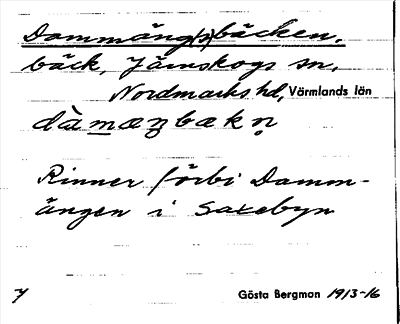 Dammäng(s)bäcken,
bäck, Järnskogs sn,
Nordmarks hd, Värmlands län
dàmæŋbækn̥
Rinner förbi Damm-
ängen i Saxebyn
Gösta Bergman 1913-16